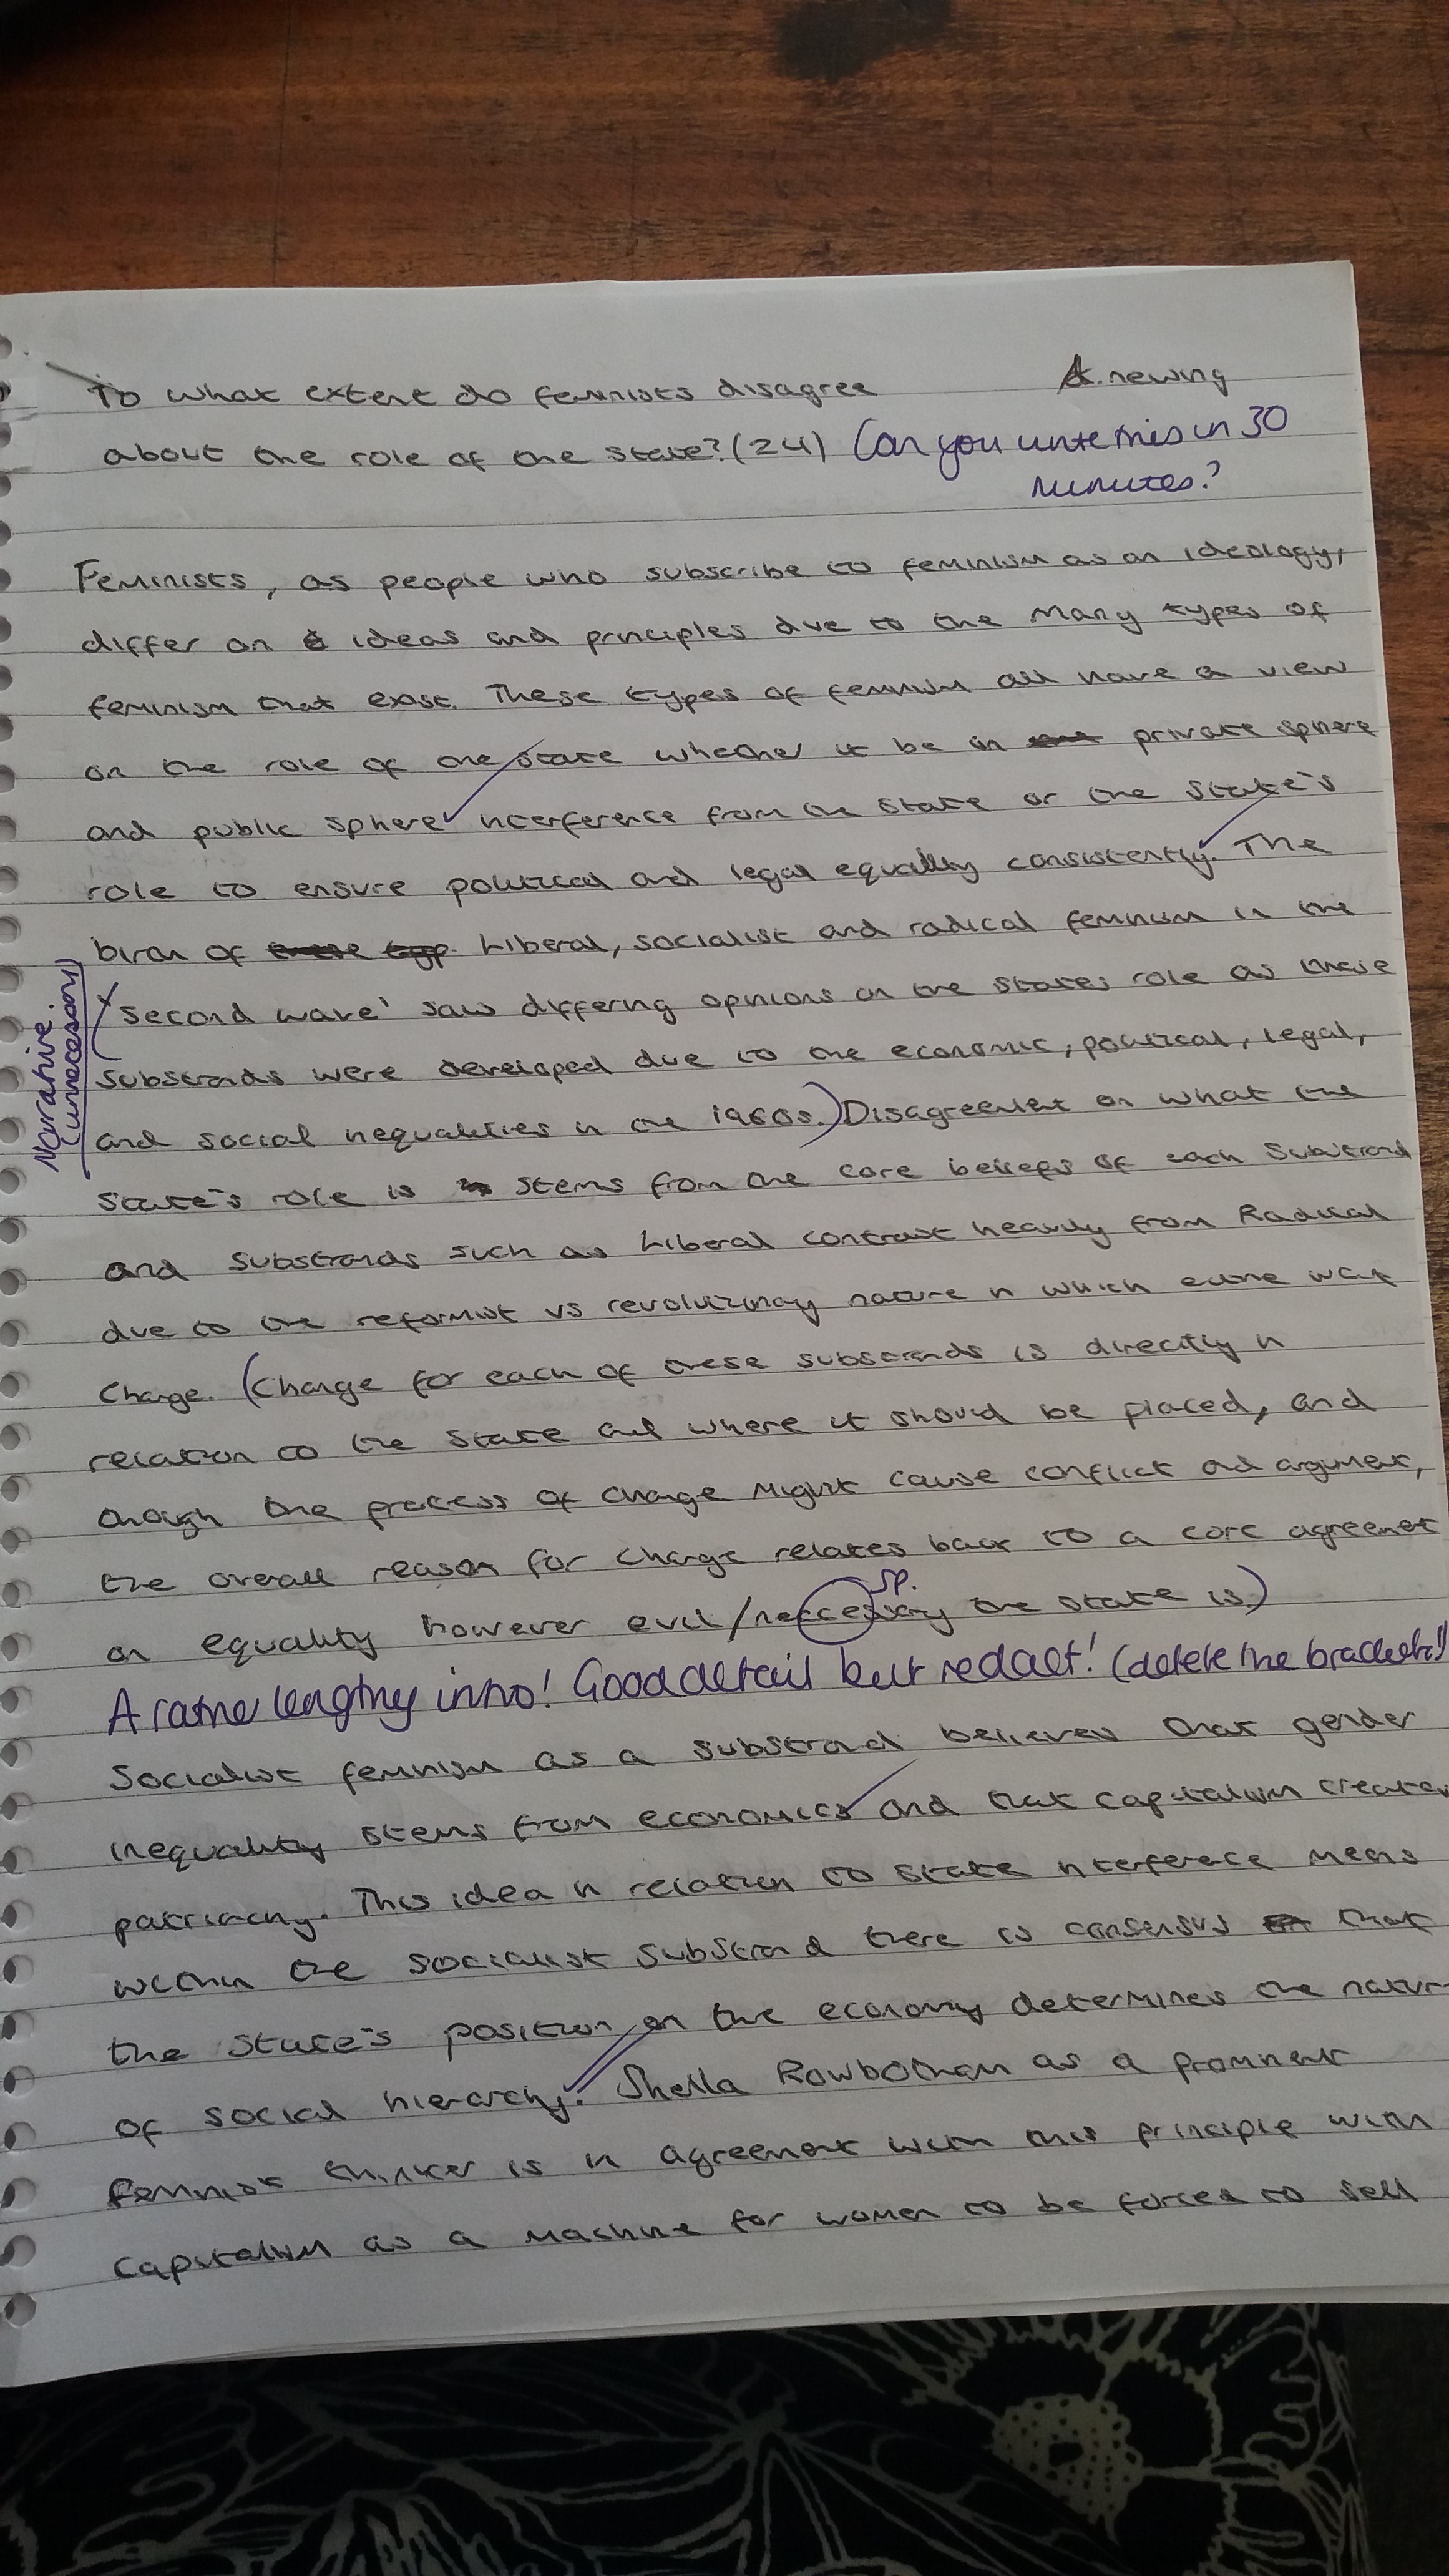 To what extent do feminists disagree
A. newing
about the role of the state? (24) Can you write this in 30
minutes?
Feminists, as people who subscribe to feminism as an ideology,
differ on ideas and principles due to the many types of
feminism that exist. These types of feminism all have a view
on the role of the state whether it be in private sphere
and public sphere interference from the state or the state's
role to ensure political and legal equality consistently. The
birth of Liberal, socialist and radical feminism in the
'second wave' saw differing opinions on the states role as these
Narrative.
(unnecessary)
substrands were developed due to the economic, political, legal,
and social inequalities in the 1960s.) Disagreement on what the
state's role is stems from the core beliefs of each substrand
and substrands such as Liberal contrast heavily from Radical
due to the reformist vs revolutionary nature in which want
change. (Change for each of these substrands is directly in
relation to the state and where it should be placed, and
though the process of change might cause conflict and argument,
the overall reason for change relates back to a core agreement
sp.
on equality however evil/neccessary the state is.)
A rather lengthy intro! Good detail but redact! (delete the brackets!)
Socialist feminism as a substrand believes that gender
inequality stems from economics and that capitalism creates
patriarchy. This idea in relation to state interference means
within the socialist substrand there is consensus that
the state's position on the economy determines the natur
of social hierarchy. Sheila Rowbotham as a prominent
feminist thinker is in agreement with this principle with
Capitalism as a machine for women to be forced to sell